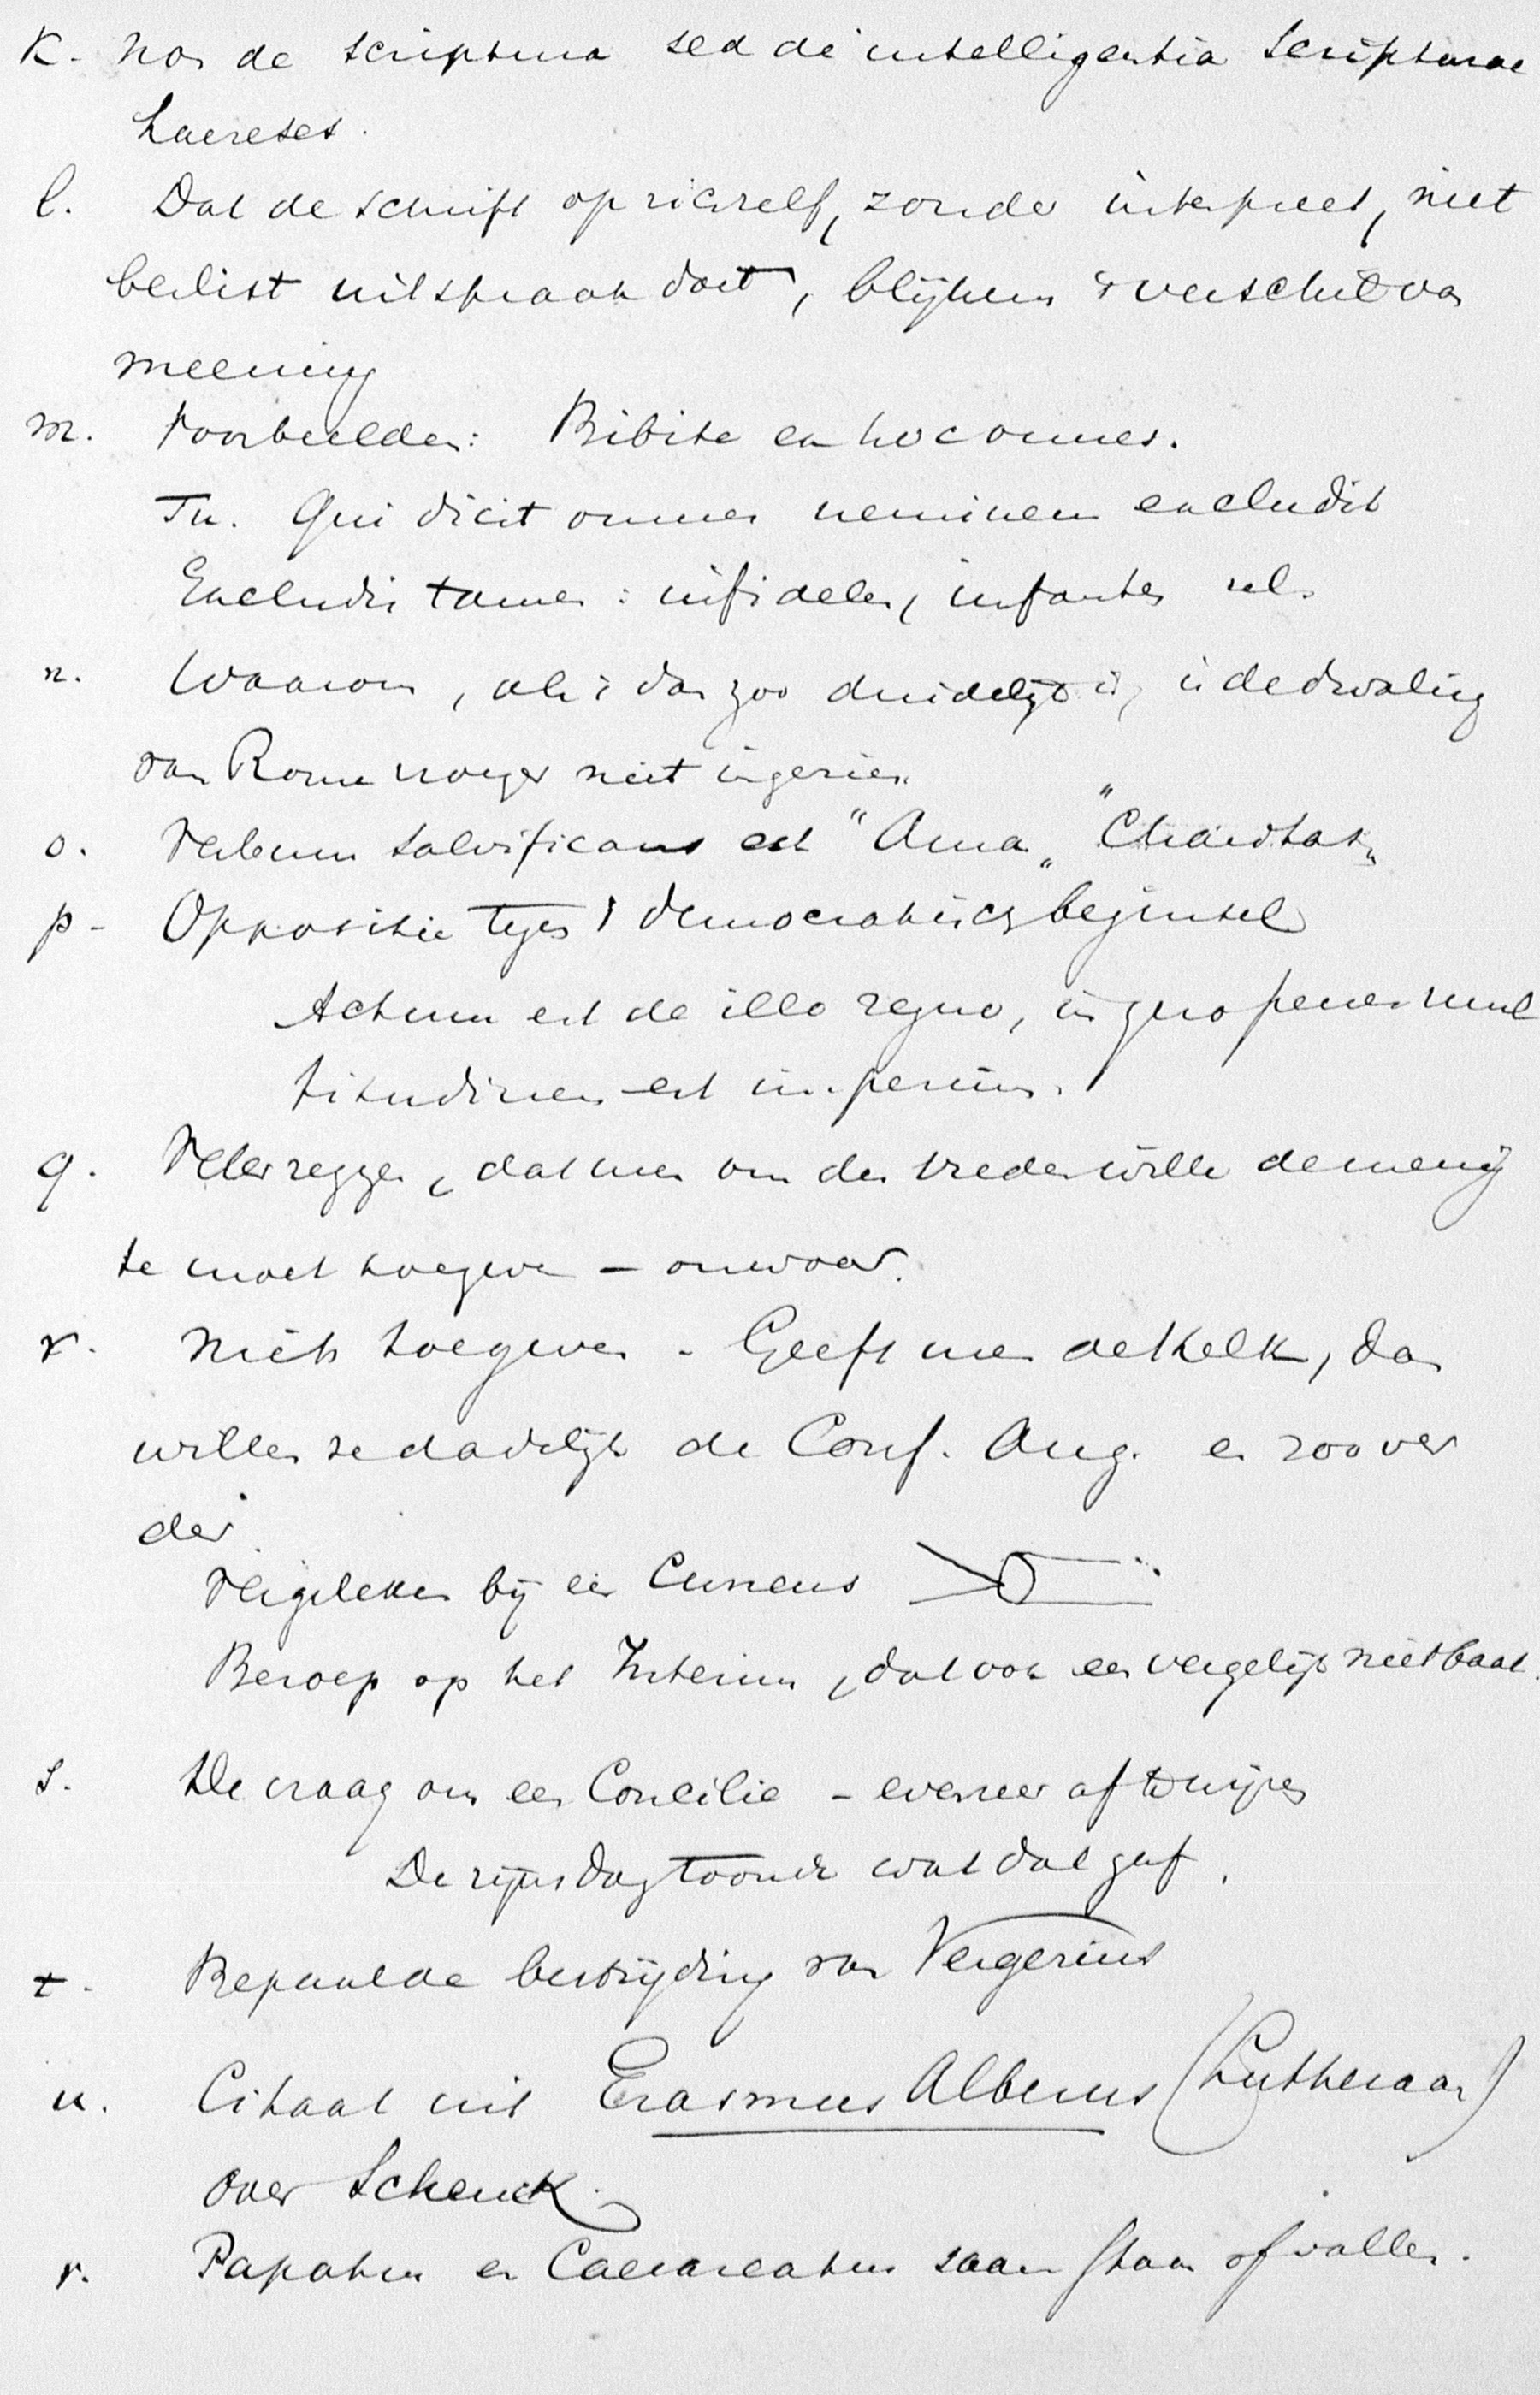 K. Non de scriptura sed de intelligentia Scripturae
haereses.
l. Dat de schrift op zichzelf, zonder interpreet, niet
beslist uitspraak doet, blijkens 't verschil van
meening
m. Voorbeelden: Bibite ex hoc omnes.
Tu. Qui dicit omnes neminem excludit
Excludis tamen: infideles, infantes
n. Waarom, als 't dan zoo duidelijk is, is de dwaling
van Rome vroeger niet ingezien
o. Verbum salvificans est "Ama"
p- Oppositie tegen 't democratisch beginsel
Actum est de illo regno, in quo penes mul
titudinem est imperium.
q. Velen zeggen, dat men om des vredes wille de menig
te moet toegeven – onwaar.
r. Niets toegeven - Geeft men de Kelk, dan
willen ze dadelijk de Conf. Aug. en zoo ver
der
Vergeleken bij een Cuneus
Beroep op het Interim, dat ook een vergelijk niet baat.
s. De vraag om een Concilie – eveneens af te wijzen
De rijksdag toonde wat dat gaf.
t. Bepaalde bestrijding van Vergerius
u. Citaat uit Erasmus Alberus (Lutheraan)
over Schenck.
v. Papatus en Caesareatus saam staan of vallen.